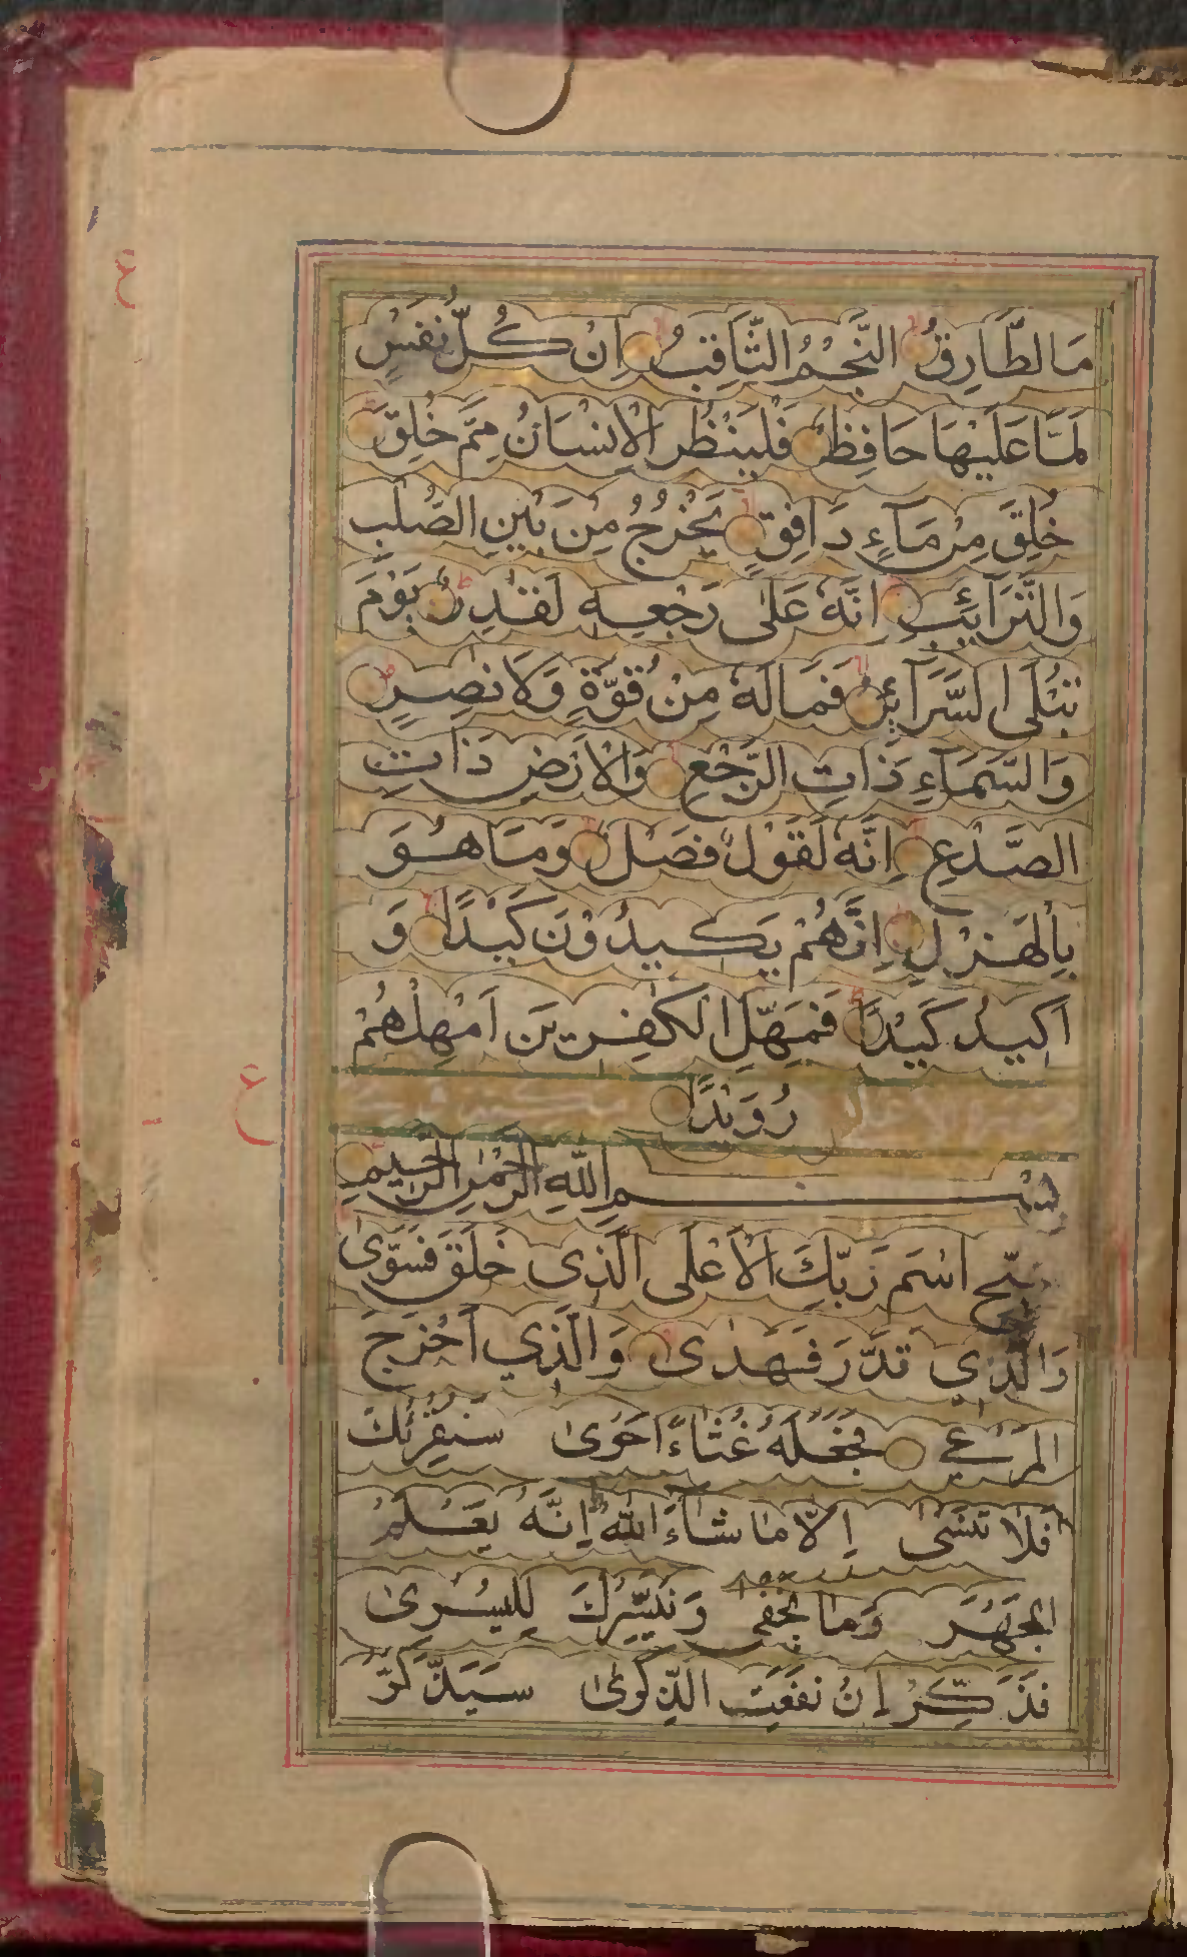 مَا الطَّارِقُ النَّجْمُ الثَّاقِبُ اِنْ كُلُّ نَفْسٍ
لَمَّا عَلَيْهَا حَافِظٌ فَلْيَنْظُرِ الْاِنْسَانُ مِمَّ خُلِقَ
خُلِقَ مِنْ مَآءٍ دَافِقٍ يَخْرُجُ مِنْ بَيْنِ الصُّلْبِ
وَالتَّرَآئِبِ اِنَّهٗ عَلٰى رَجْعِهٖ لَقَدِرٌ يَوْمَ
تُبْلَى السَّرَآئِرُ فَمَا لَهٗ مِنْ قُوَّةٍ وَلَا نَصِرٍ
وَالسَّمَآءِ ذَاتِ الرَّجْعِ وَالْاَرْضِ ذَاتِ
الصَّدْعِ اِنَّهٗ لَقَوْلٌ فَصْلٌ وَمَا هُوَ
بِالْهَزْلِ اِنَّهُمْ يَكِيدُوْنَ كَيْدًا وَ
اَكِيدُ كَيْدًا فَمَهِّلِ الْكٰفِرِيْنَ اَمْهِلْهُمْ
رُوَيْدًا
بِسْمِ اللّٰهِ الرَّحْمٰنِ الرَّحِيْمِ
سَبِّحِ اسْمَ رَبِّكَ الْاَعْلَى الَّذِى خَلَقَ فَسَوّٰى
وَالَّذِي قَدَّرَ فَهَدٰى وَالَّذِي اَخْرَجَ
الْمَرْعٰى فَجَعَلَهٗ غُثَآءً اَحْوٰى سَنُقْرِئُكَ
فَلَا تَنْسٰى اِلَّا مَا شَآءَ اللّٰهُ اِنَّهٗ يَعْلَمُ
الْجَهْرَ وَمَا يَخْفٰى وَنُيَسِّرُكَ لِلْيُسْرٰى
فَذَكِّرْ اِنْ نَفَعَتِ الذِّكْرٰى سَيَذَّكَّرُ
ع
ع